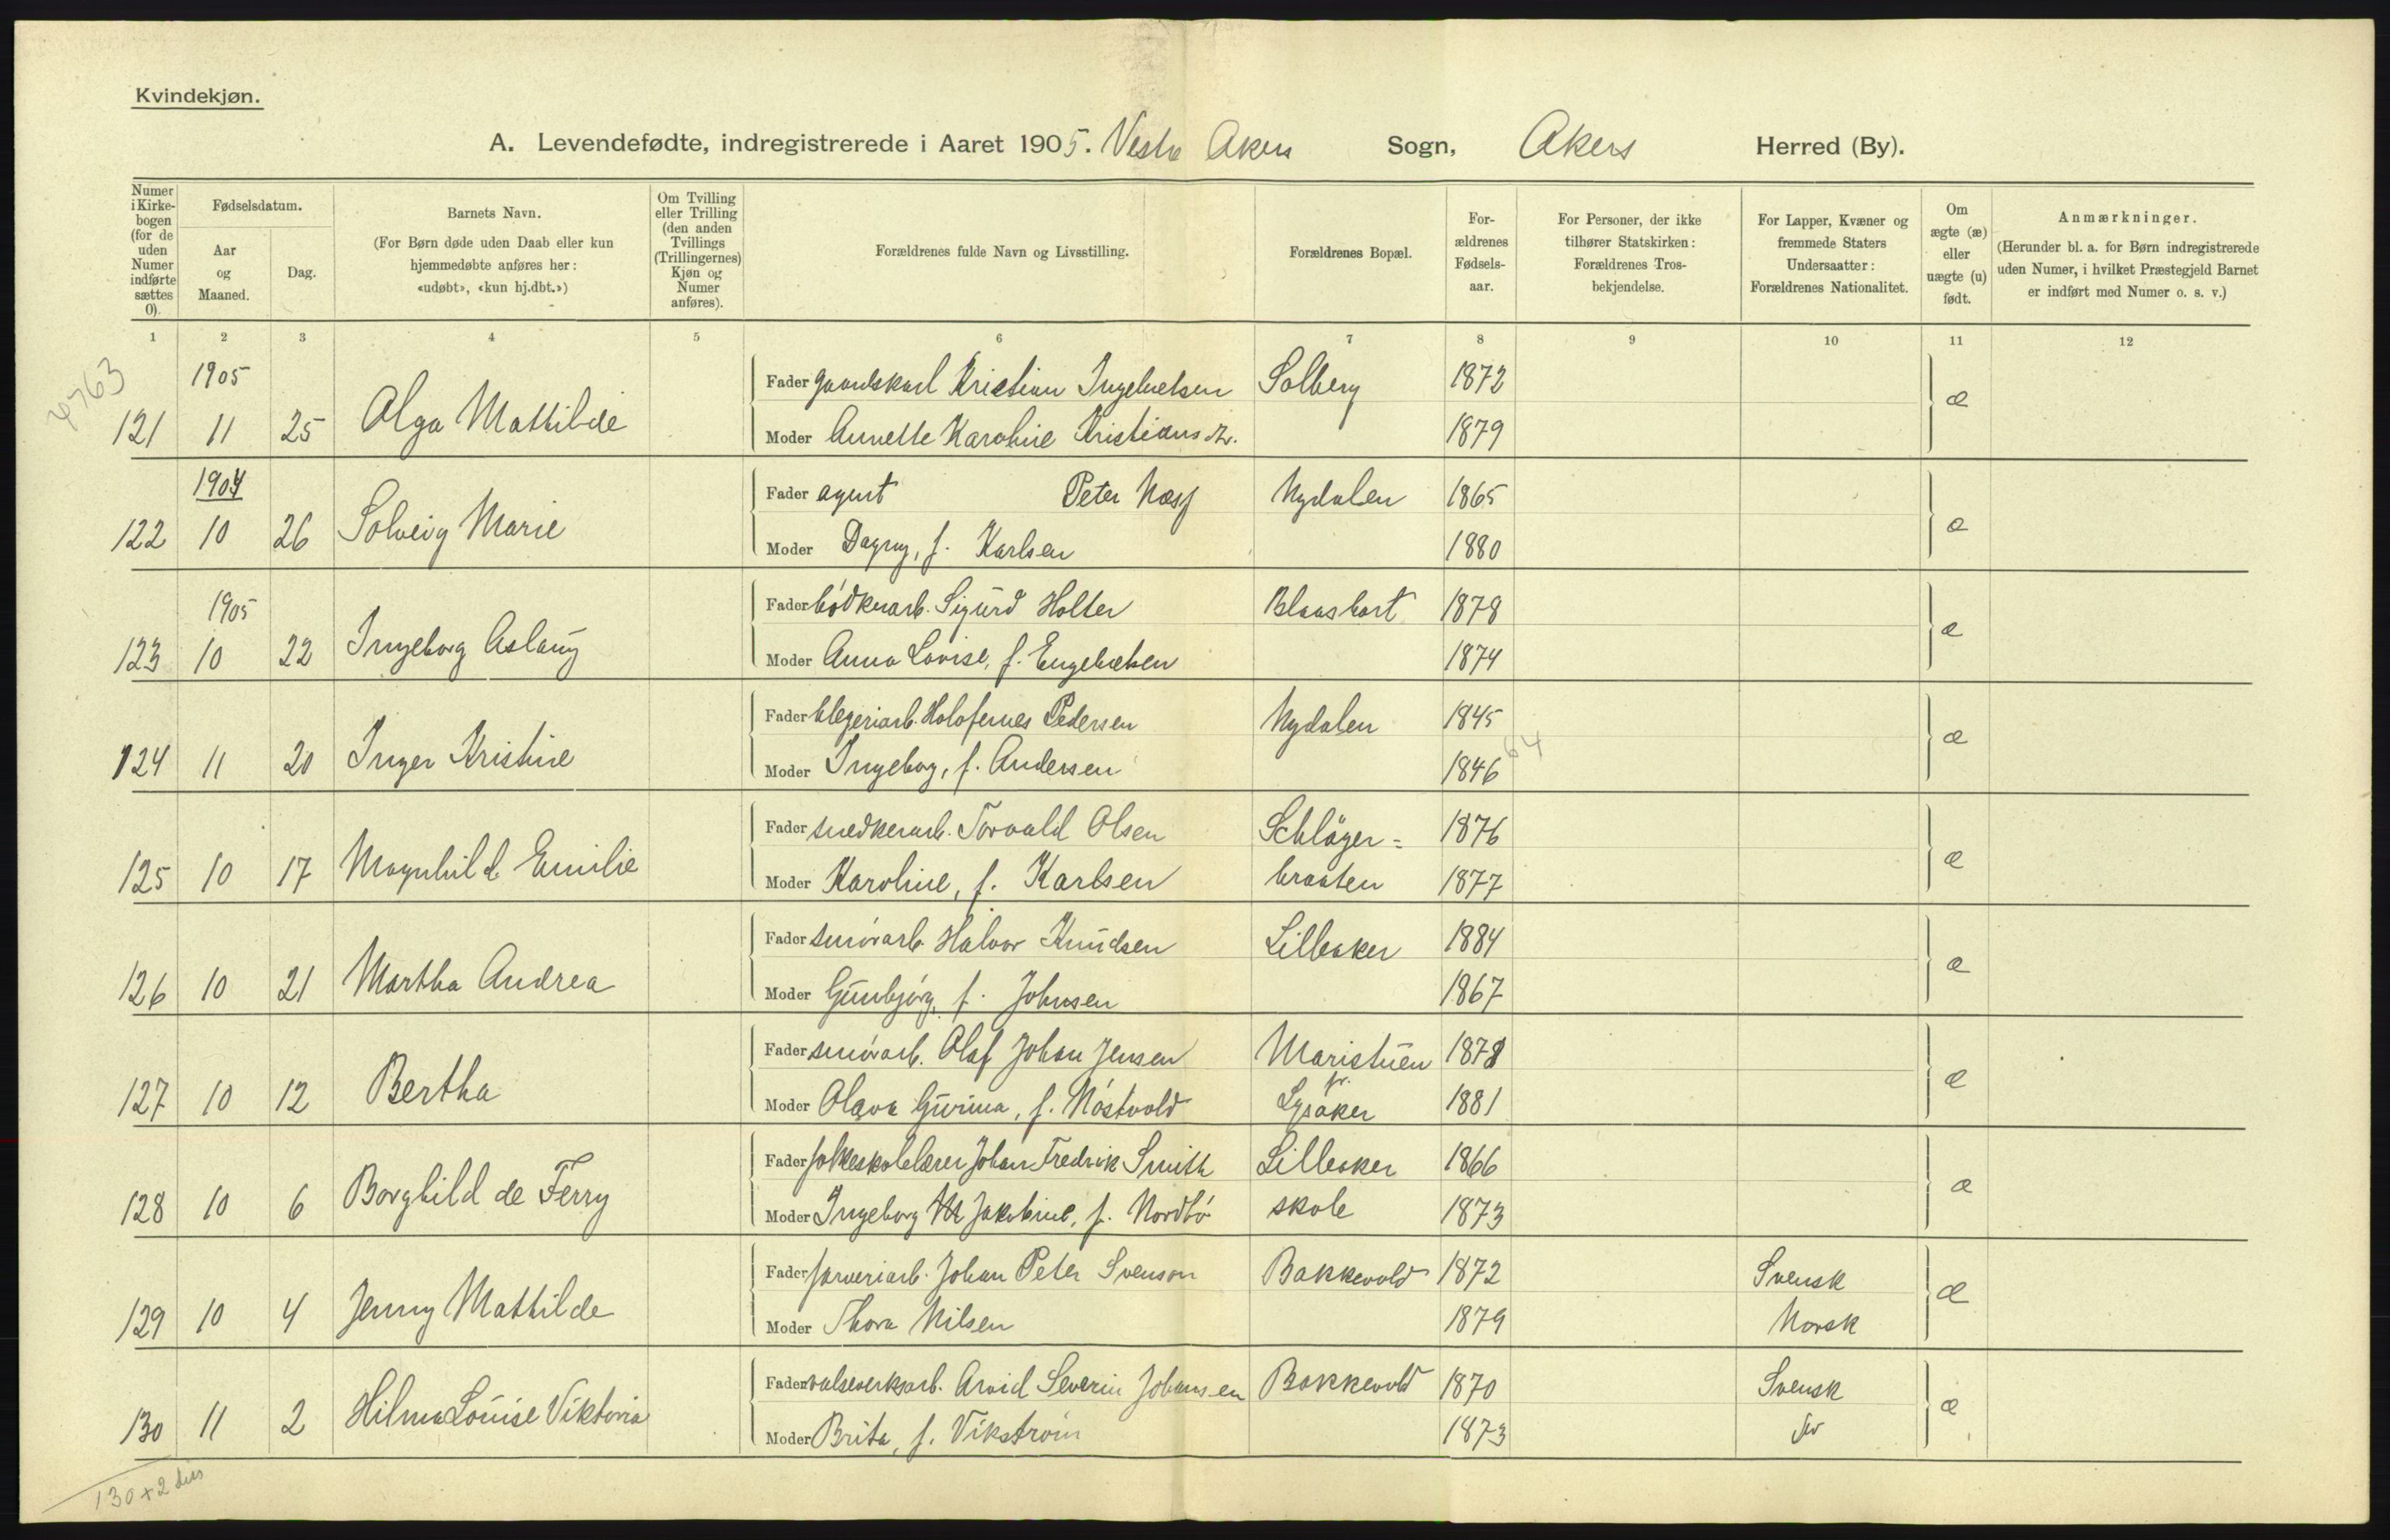 Kvindekjøn.
A. Levendefødte, indregistrerede i Aaret 1905. Vestre Akers Sogn, Akers Herred (By).
Numer i Kirkebogen (for de uden Numer indførte sættes 0).
Fødselsdatum.
Aar og Maaned.
Dag.
Barnets Navn.
(For Børn døde uden Daab eller kun hjemmedøbte anføres her: «udøbt», «kun hj.dbt.»)
Om Tvilling eller Trilling (den anden Tvillings (Trillingernes) Kjøn og Numer anføres).
Forældrenes fulde Navn og Livsstilling.
Forældrenes Bopæl.
Forældrenes Fødselsaar.
For Personer, der ikke tilhører Statskirken: Forældrenes Trosbekjendelse.
For Lapper, Kvæner og fremmede Staters Undersaatter: Forældrenes Nationalitet.
Om ægte (æ) eller uægte (u) født.
Anmærkninger.
(Herunder bl. a. for Børn indregistrerede uden Numer, i hvilket Præstegjeld Barnet er indført med Numer o. s. v.)
1 2 3 4 5 6 7 8 9 10 11 12
4763
1905 Fader gaardskarl Kristian Ingebretsen Solberg 1872
121 11 25 Olga Mathilde Moder Annette Karoline Kristiansdtr. 1879 æ
1904 Fader agent Peter Næss Nydalen 1865
122 10 26 Solveig Marie Moder Dagny, f. Karlsen 1880 æ
1905 Fader bødkerarb. Sigurd Holter Blaasbort 1878
123 10 22 Ingeborg Aslaug Moder Anna Lovise, f. Engebretsen 1874 æ
Fader blegeriarb. Holofernes Pedersen Nydalen 1845
124 11 20 Inger Kristine Moder Ingeborg, f. Andersen 1846 64 æ
Fader snedkerarb. Torvald Olsen Schläger= 1876
125 10 17 Magnhild Emilie Moder Karoline, f. Karlsen braaten 1877 æ
Fader smørarb. Halvor Knudsen Lilleaker 1884
126 10 21 Martha Andrea Moder Gunbjørg, f. Johnsen 1867 æ
Fader smørarb. Olaf Johan Jensen Maristuen 1878
127 10 12 Bertha Moder Olava Gurina, f. Nøstvold pr. Lysaker 1881 æ
Fader folkeskolelærer Johan Fredrik Smith Lilleaker 1866
128 10 6 Borghild de Ferry Moder Ingeborg M Jakobine, f. Nordbø skole 1873 æ
Fader farveriarb. Johan Peter Svenson Bakkevold 1872 Svensk
129 10 4 Jenny Mathilde Moder Thora Nilsen 1879 Norsk æ
Fader valseverksarb. Arvid Severin Johansen Bakkevold 1870 Svensk
130 11 2 Hilma Louise Viktoria Moder Brita, f. Vikstrøm 1873 Sv æ
130+2